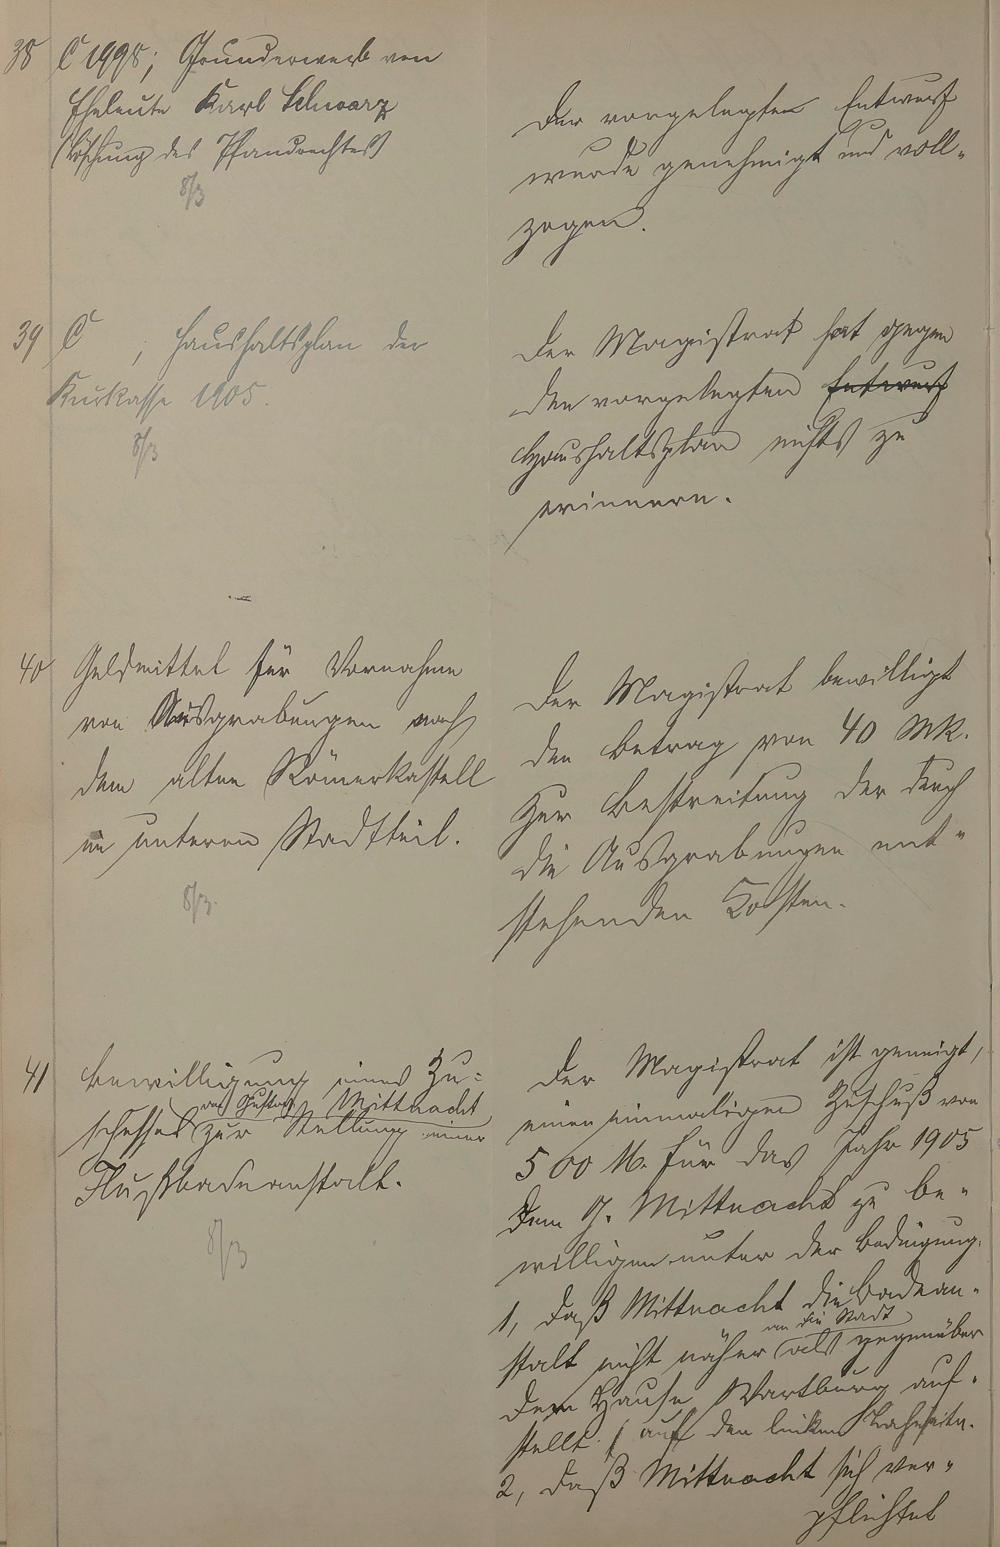 38 C 1998; Grunderwerb von
Eheleute Karl Schwarz
(Löschung des Pfandrechtes)
8/3
Der vorgelegten Entwurf
wurde genehmigt und voll-
zogen.
39 C , Haushaltsplan der
Kurkasse 1905.
8/3
Der Magistrat hat gegen
den vorgelegten Entwurf
Haushaltsplan nichts zu
erinnern.
40 Geldmittel für Vornahme
von Ausgrabungen nach
dem alten Römerkastell
im unteren Stadtteil.
8/3.
Der Magistrat bewilligt
den Betrag von 40 Mk.
zur Bestreitung der durch
die Ausgrabungen ent-
stehenden Kosten.
41 Bewilligung eines Zu-
an Gustav Mittnacht
schusses zur Stellung einer
Flußbadeanstalt.
8/3
Der Magistrat ist geneigt,
einen einmaligen Zuschuß von
500 M. für das Jahr 1905
dem G. Mittnacht zu be-
willigen unter der Bedingung,
1, daß Mittnacht die Badean-
an die Stadt
stalt nicht näher als gegenüber
dem Hause Wartburg auf-
stellt (auf den linken Lahnseite.
2, daß Mittnacht sich ver-
pflichtet